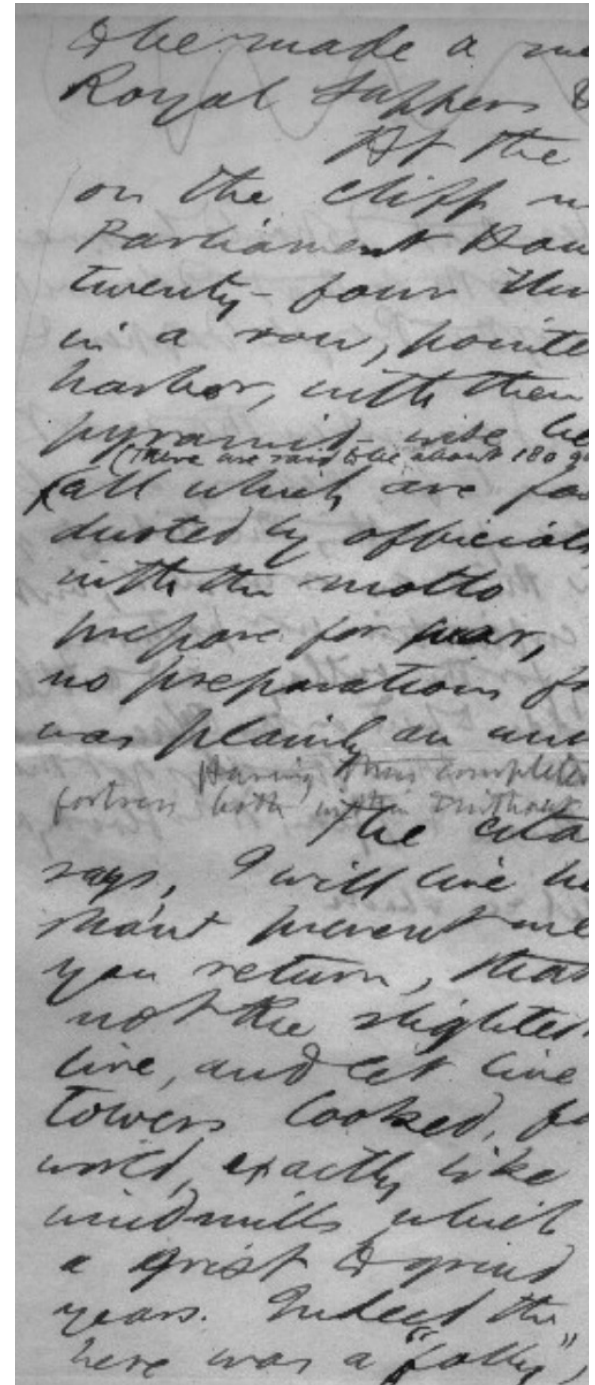 to be made a
Royal Sappers &
At the
on the cliff
Parliament
twenty-four
in a row,
harbor, with their
pyramid-wise
(there are said to be about 180
(all which are
dusted by officials
with the motto
prepare for war,
no preparations
was plainly an
Having thus
fortress both within & without
The
says, I will live
shan't prevent me
you return, that
not the slightest
live, and let live
towers looked,
world, exactly like
windmills which
a grist to grind
years. Indeed the
here was a "folly",